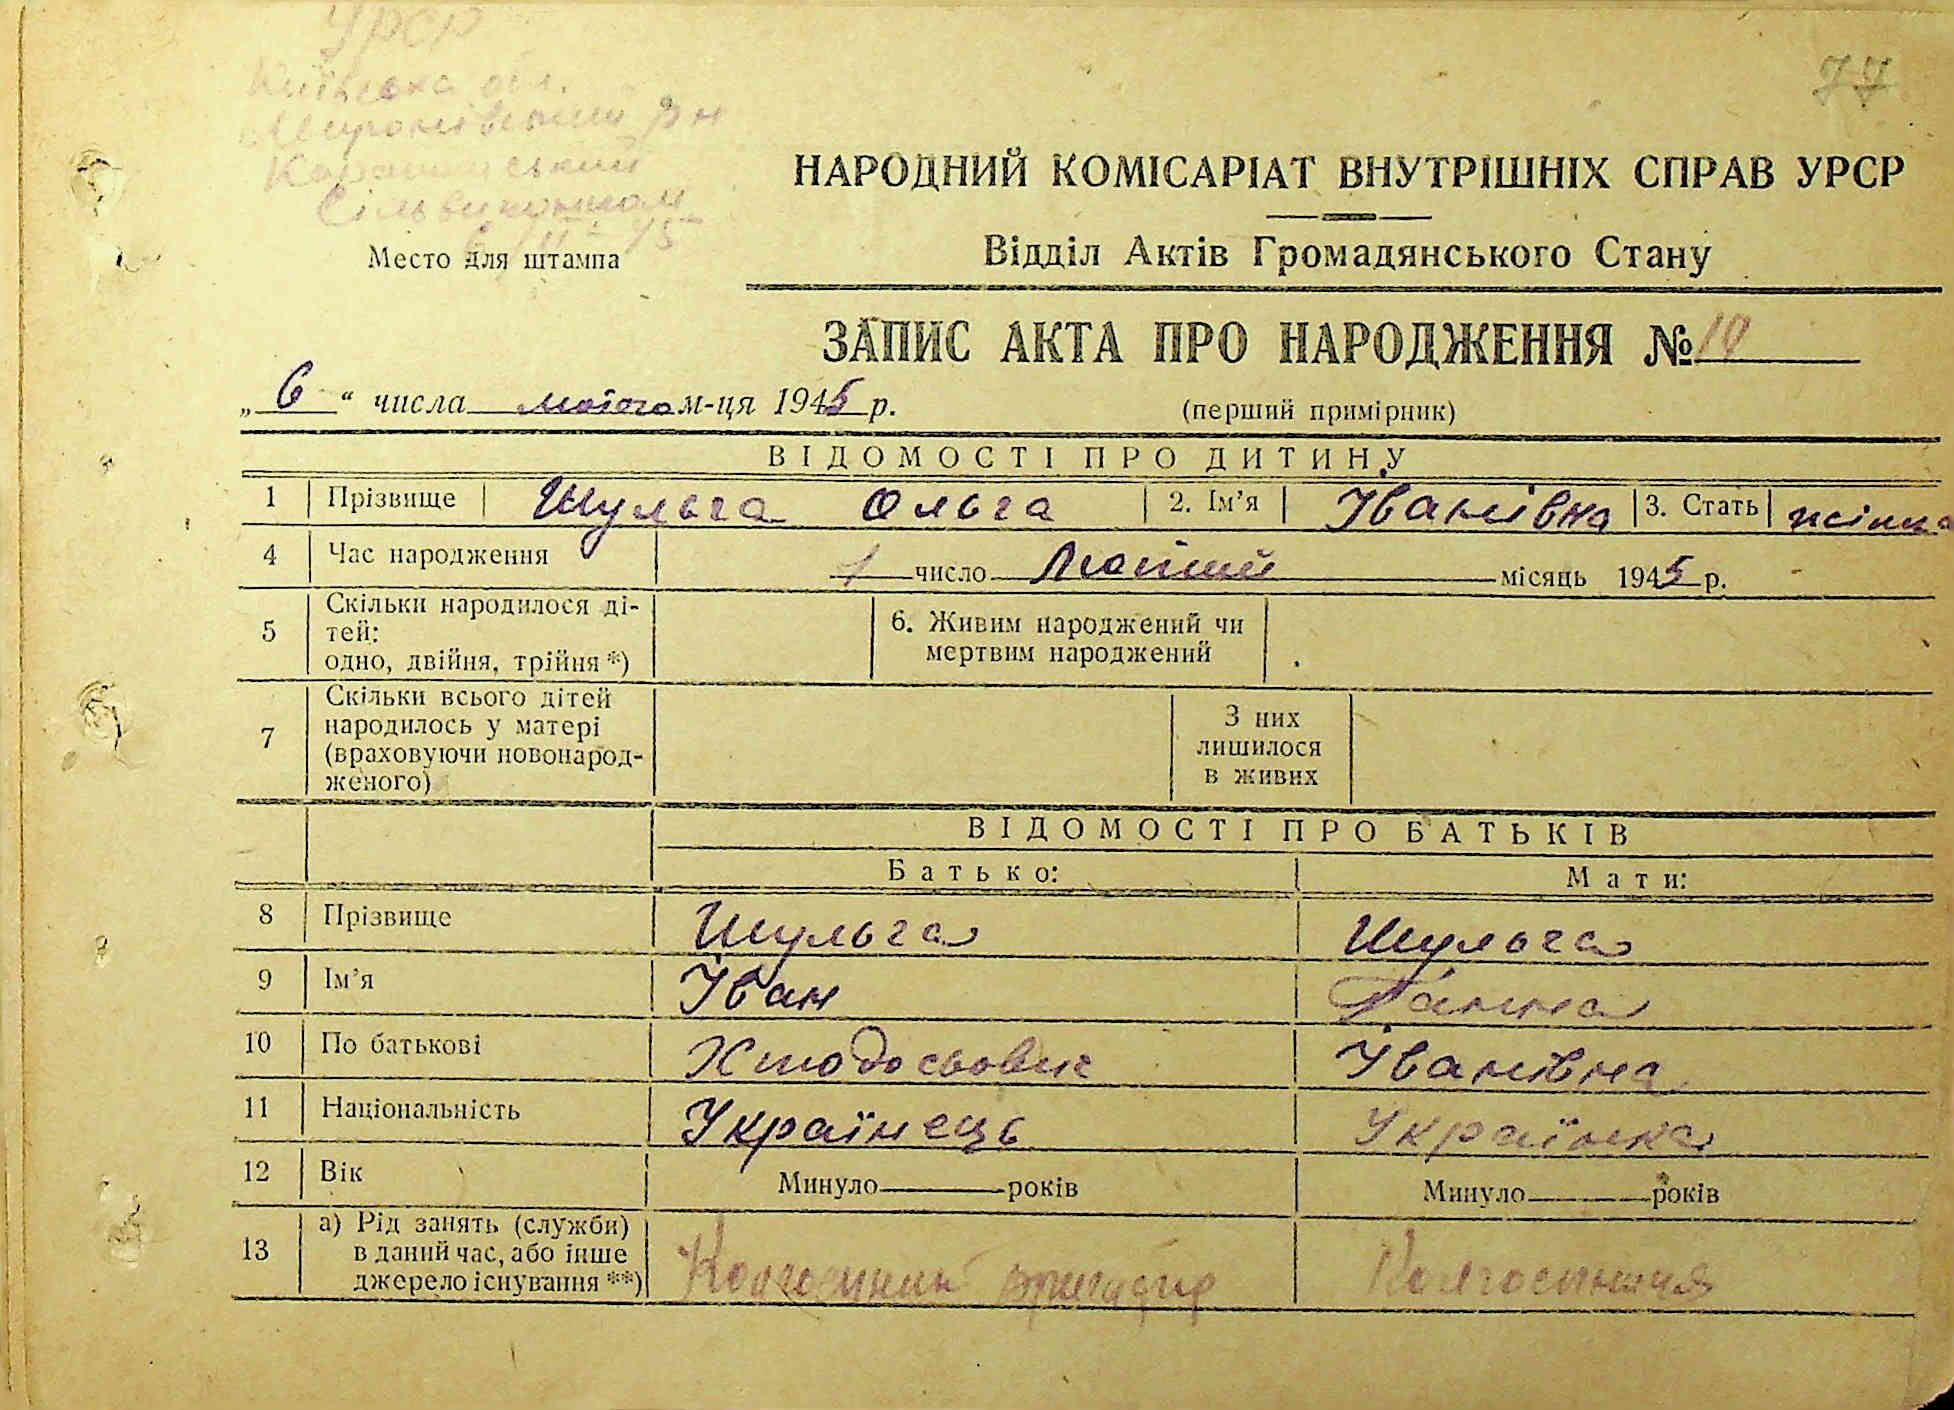 УРСР
Київська обл.
Миронівський р-н
Карапишський
Сільвиконком
6/II 45
77
НАРОДНИЙ КОМІСАРІАТ ВНУТРІШНІХ СПРАВ УРСР
Место для штампа
Відділ Актів Громадянського Стану
ЗАПИС АКТА ПРО НАРОДЖЕННЯ № 10
„ 6 “ числа лютого м-ця 1945 р.
(перший примірник)
ВІДОМОСТІ ПРО ДИТИНУ
1 Прізвище Шульга Ольга 2. Ім’я Іванівна 3. Стать жінка
4 Час народження 1 число Лютий місяць 1945 р.
5 Скільки народилося ді-
тей:
одно, двійня, трійня *)
6. Живим народжений чи
мертвим народжений
7 Скільки всього дітей
народилось у матері
(враховуючи новонарод-
женого)
З них
лишилося
в живих
ВІДОМОСТІ ПРО БАТЬКІВ
Батько: Мати:
8 Прізвище Шульга Шульга
9 Ім’я Іван Ганна
10 По батькові Хтодосьович Іванівна
11 Національність Українець Українка
12 Вік Минуло років Минуло років
13 а) Рід занять (служби)
в даний час, або інше
джерело існування **)
Колгоспник бригадир Колгоспниця